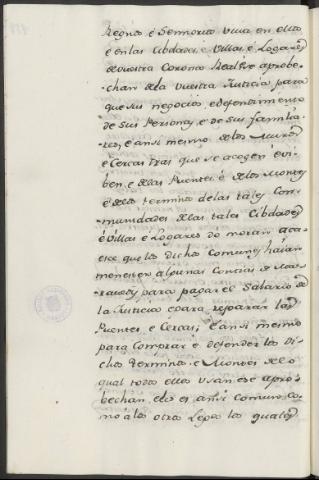 Regnos é Sennorios viva en ellos
é en las Cibdades, e Villas, e Logares
de vuestra Corona Real se aprobe-
chan de la vuestra Justicia para
que sus negocios, e defendimiento
de sus Personas, e de sus familia-
res, é ansi mesmo de los Muros
e Cercas tras que se acogen é vi-
ben, e de las Puentes é de los Montes
é de los terminos de las tales Com-
munidades de las tales Cibdades
é Villas é Logares do moran acae-
sce que los dichos Comunes haian
menester algunas Contias de Ma-
ravedis para pagar el Salario de
la Justicia e para reparar las
Puentes, e Cercas, é ansi mesmo
para Comprar é defender los Di-
chos terminos, e Montes de lo
qual todos ellos usan e se apro-
bechan, e lo es ansi comun, co-
mo á los otros Legos los quales